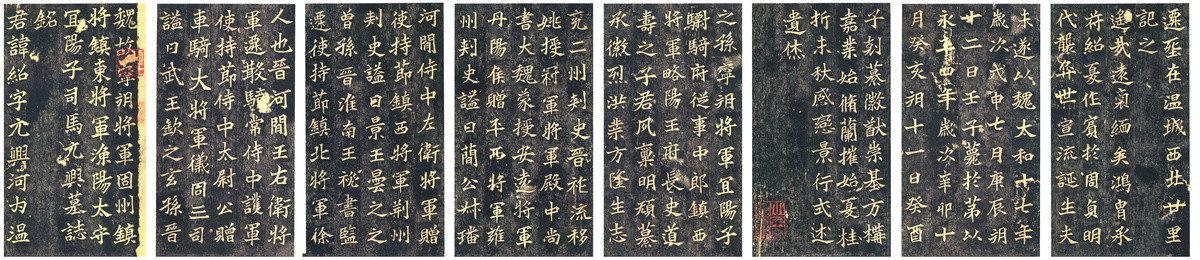 魏故寧朔將軍固州鎮
將鎮東將軍漁陽太守
宜陽子司馬元興墓誌
銘
君諱紹字元興河內溫
人也晉河間王右衛將
軍遷散騎常侍中護軍
使持節侍中太尉公贈
車騎大將軍儀同三司
謚曰武王欽之玄孫晉
河間侍中左衛將軍贈
使持節鎮西將軍荊州
刾史謚曰景王曇之之
曾孫晉淮南王祕書監
遷使持節鎮北將軍徐
兗二州刾史晉祚流移
姚授冠軍將軍殿中尚
書大魏蒙授安遠將軍
丹陽侯贈平西將軍雍
州刾史謚曰簡公叔璠
之孫寧朔將軍宜陽子
驎騎府從事中郎鎮西
將軍略陽王府長史道
壽之子君夙稟明頑纂
承徽烈洪業方隆生志
未遂以魏太和十七年
歲次戊申七月庚辰朔
廿二日壬子薨於第以
永平四年歲次辛卯十
月癸亥朔十一日癸酉
遷塟在溫城西北廿里
記之
遙哉遠裔緬矣鴻胄承
符紹夏作賓於周貞明
代襲弈世宣流誕生夫
子剋纂徽猷崇基方構
嘉業始脩蘭摧始夏桂
折未秋感戀景行式述
遺休